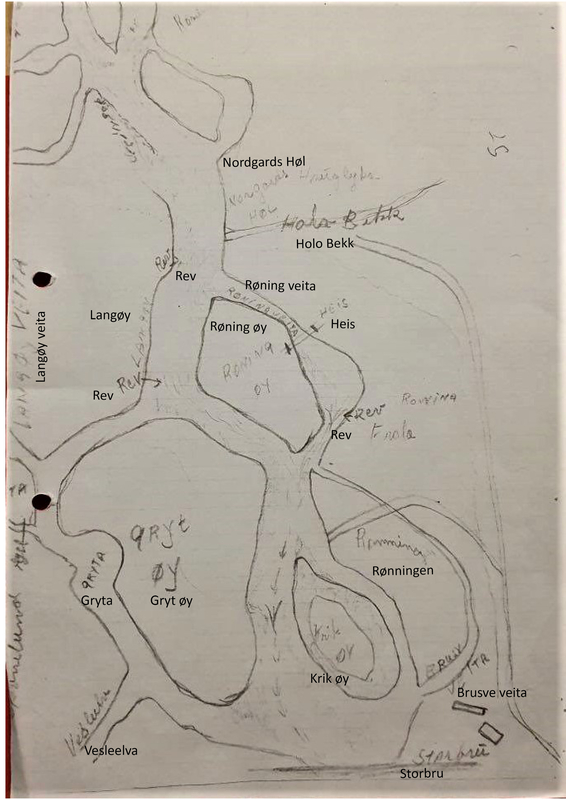 Nordgards Høl
HØL
Hola Bekk
Holo Bekk
57
Rev
Rev
Røning veita
RØNING VEITA
HEIS
Heis
Langøy
LANGØY
Røning øy
RØNING
ØY
LANGØ VEITA
Langøy veita
Rev
Rev
Rev
Rev
GRYt
ØY
Gryt øy
GRYTA
Gryta
Rønningen
Krik
ØY
Krik øy
Brusve veita
Vesleelva
Storbru
Storbru